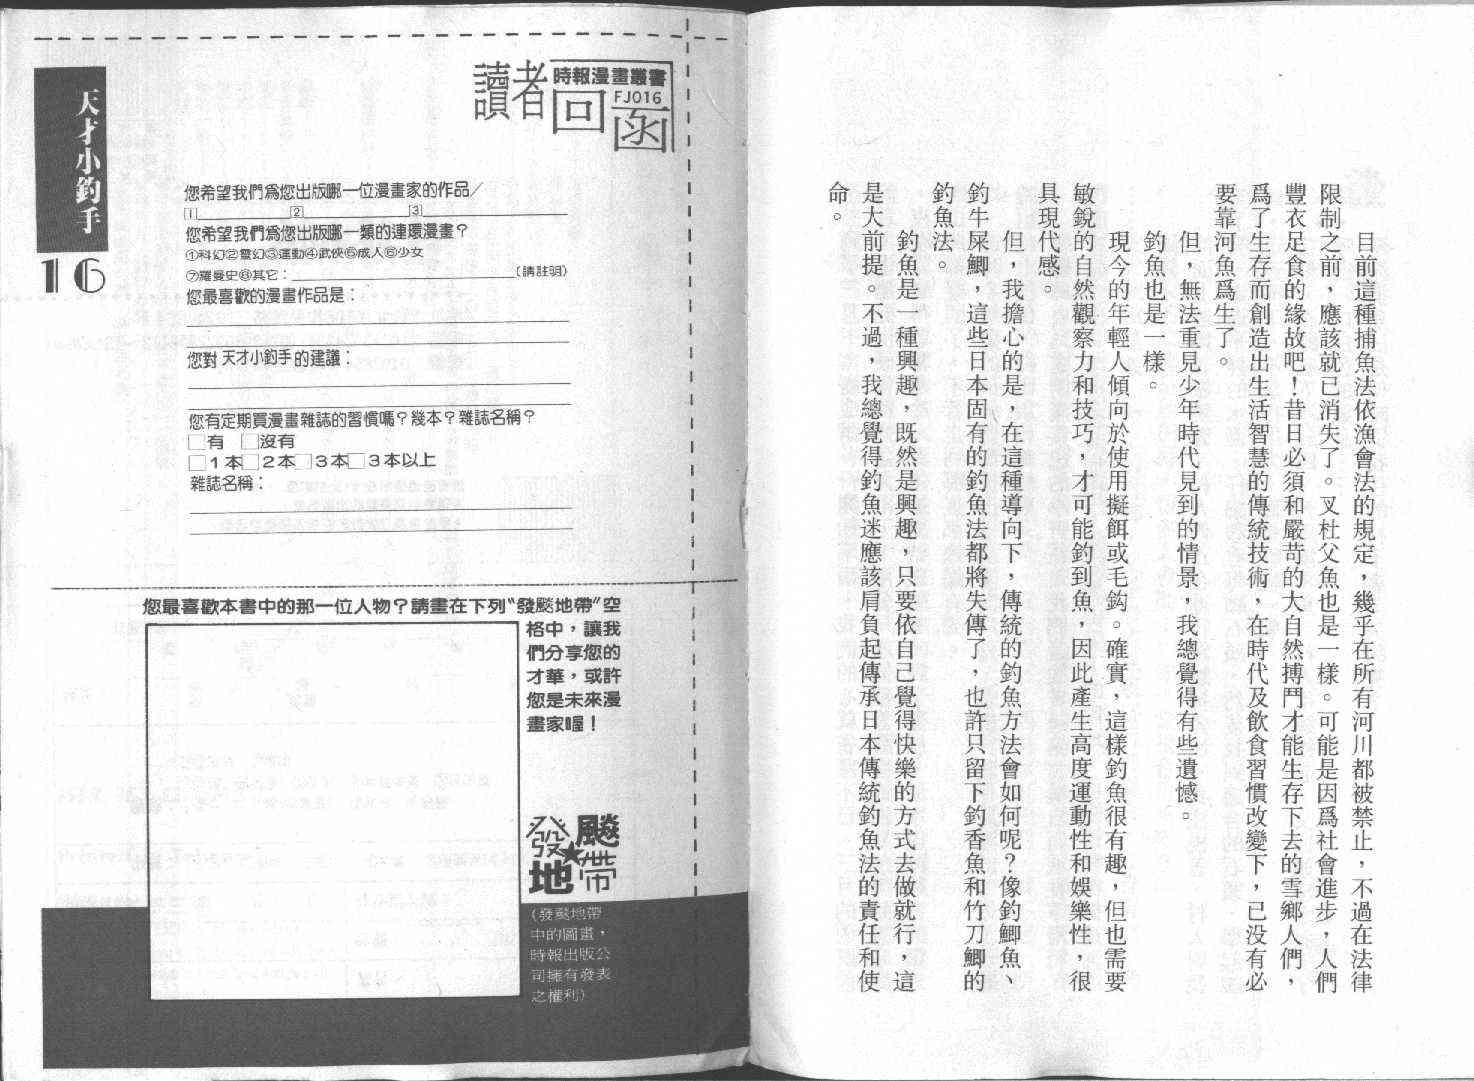 目前這種捕魚法依漁會法的規定，幾乎在所有河川都被禁止，不過在法律
限制之前，應該就已消失了。叉杜父魚也是一樣。可能是因爲社會進步，人們
豐衣足食的緣故吧！昔日必須和嚴苛的大自然搏鬥才能生存下去的雪鄉人們，
爲了生存而創造出生活智慧的傳統技術，在時代及飲食習慣改變下，已没有必
要靠河魚爲生了。
但，無法重見少年時代見到的情景，我總覺得有些遺憾。
釣魚也是一樣。
現今的年輕人傾向於使用擬餌或毛鈎。確實，這樣釣魚很有趣，但也需要
敏銳的自然觀察力和技巧，才可能釣到魚，因此產生高度運動性和娛樂性，很
具現代感。
但，我擔心的是，在這種導向下，傳統的釣魚方法會如何呢？像釣鯽魚、
釣牛屎鯽，這些日本固有的釣魚法都將失傳了，也許只留下釣香魚和竹刀鯽的
釣魚法。
釣魚是一種興趣，既然是興趣，只要依自己覺得快樂的方式去做就行，這
是大前提。不過，我總覺得釣魚迷應該肩負起傳承日本傳統釣魚法的責任和使
命。
天才小釣手
16
讀者回函
時報漫畫叢書
FJ016
您希望我們爲您出版哪一位漫畫家的作品／
1 2 3
您希望我們爲您出版哪一類的連環漫畫？
①科幻②靈幻③運動④武俠⑤成人⑥少女
⑦羅曼史⑧其它：（請註明）
您最喜歡的漫畫作品是：
您對天才小釣手的建議：
您有定期買漫畫雜誌的習慣嗎？幾本？雜誌名稱？
□有 □沒有
□1本□2本□3本□3本以上
雜誌名稱：
您最喜歡本書中的那一位人物？請畫在下列“發颷地帶”空
格中，讓我
們分享您的
才華，或許
您是未來漫
畫家喔！
發颷地帶
（發颷地帶
中的圖畫，
時報出版公
司擁有發表
之權利）